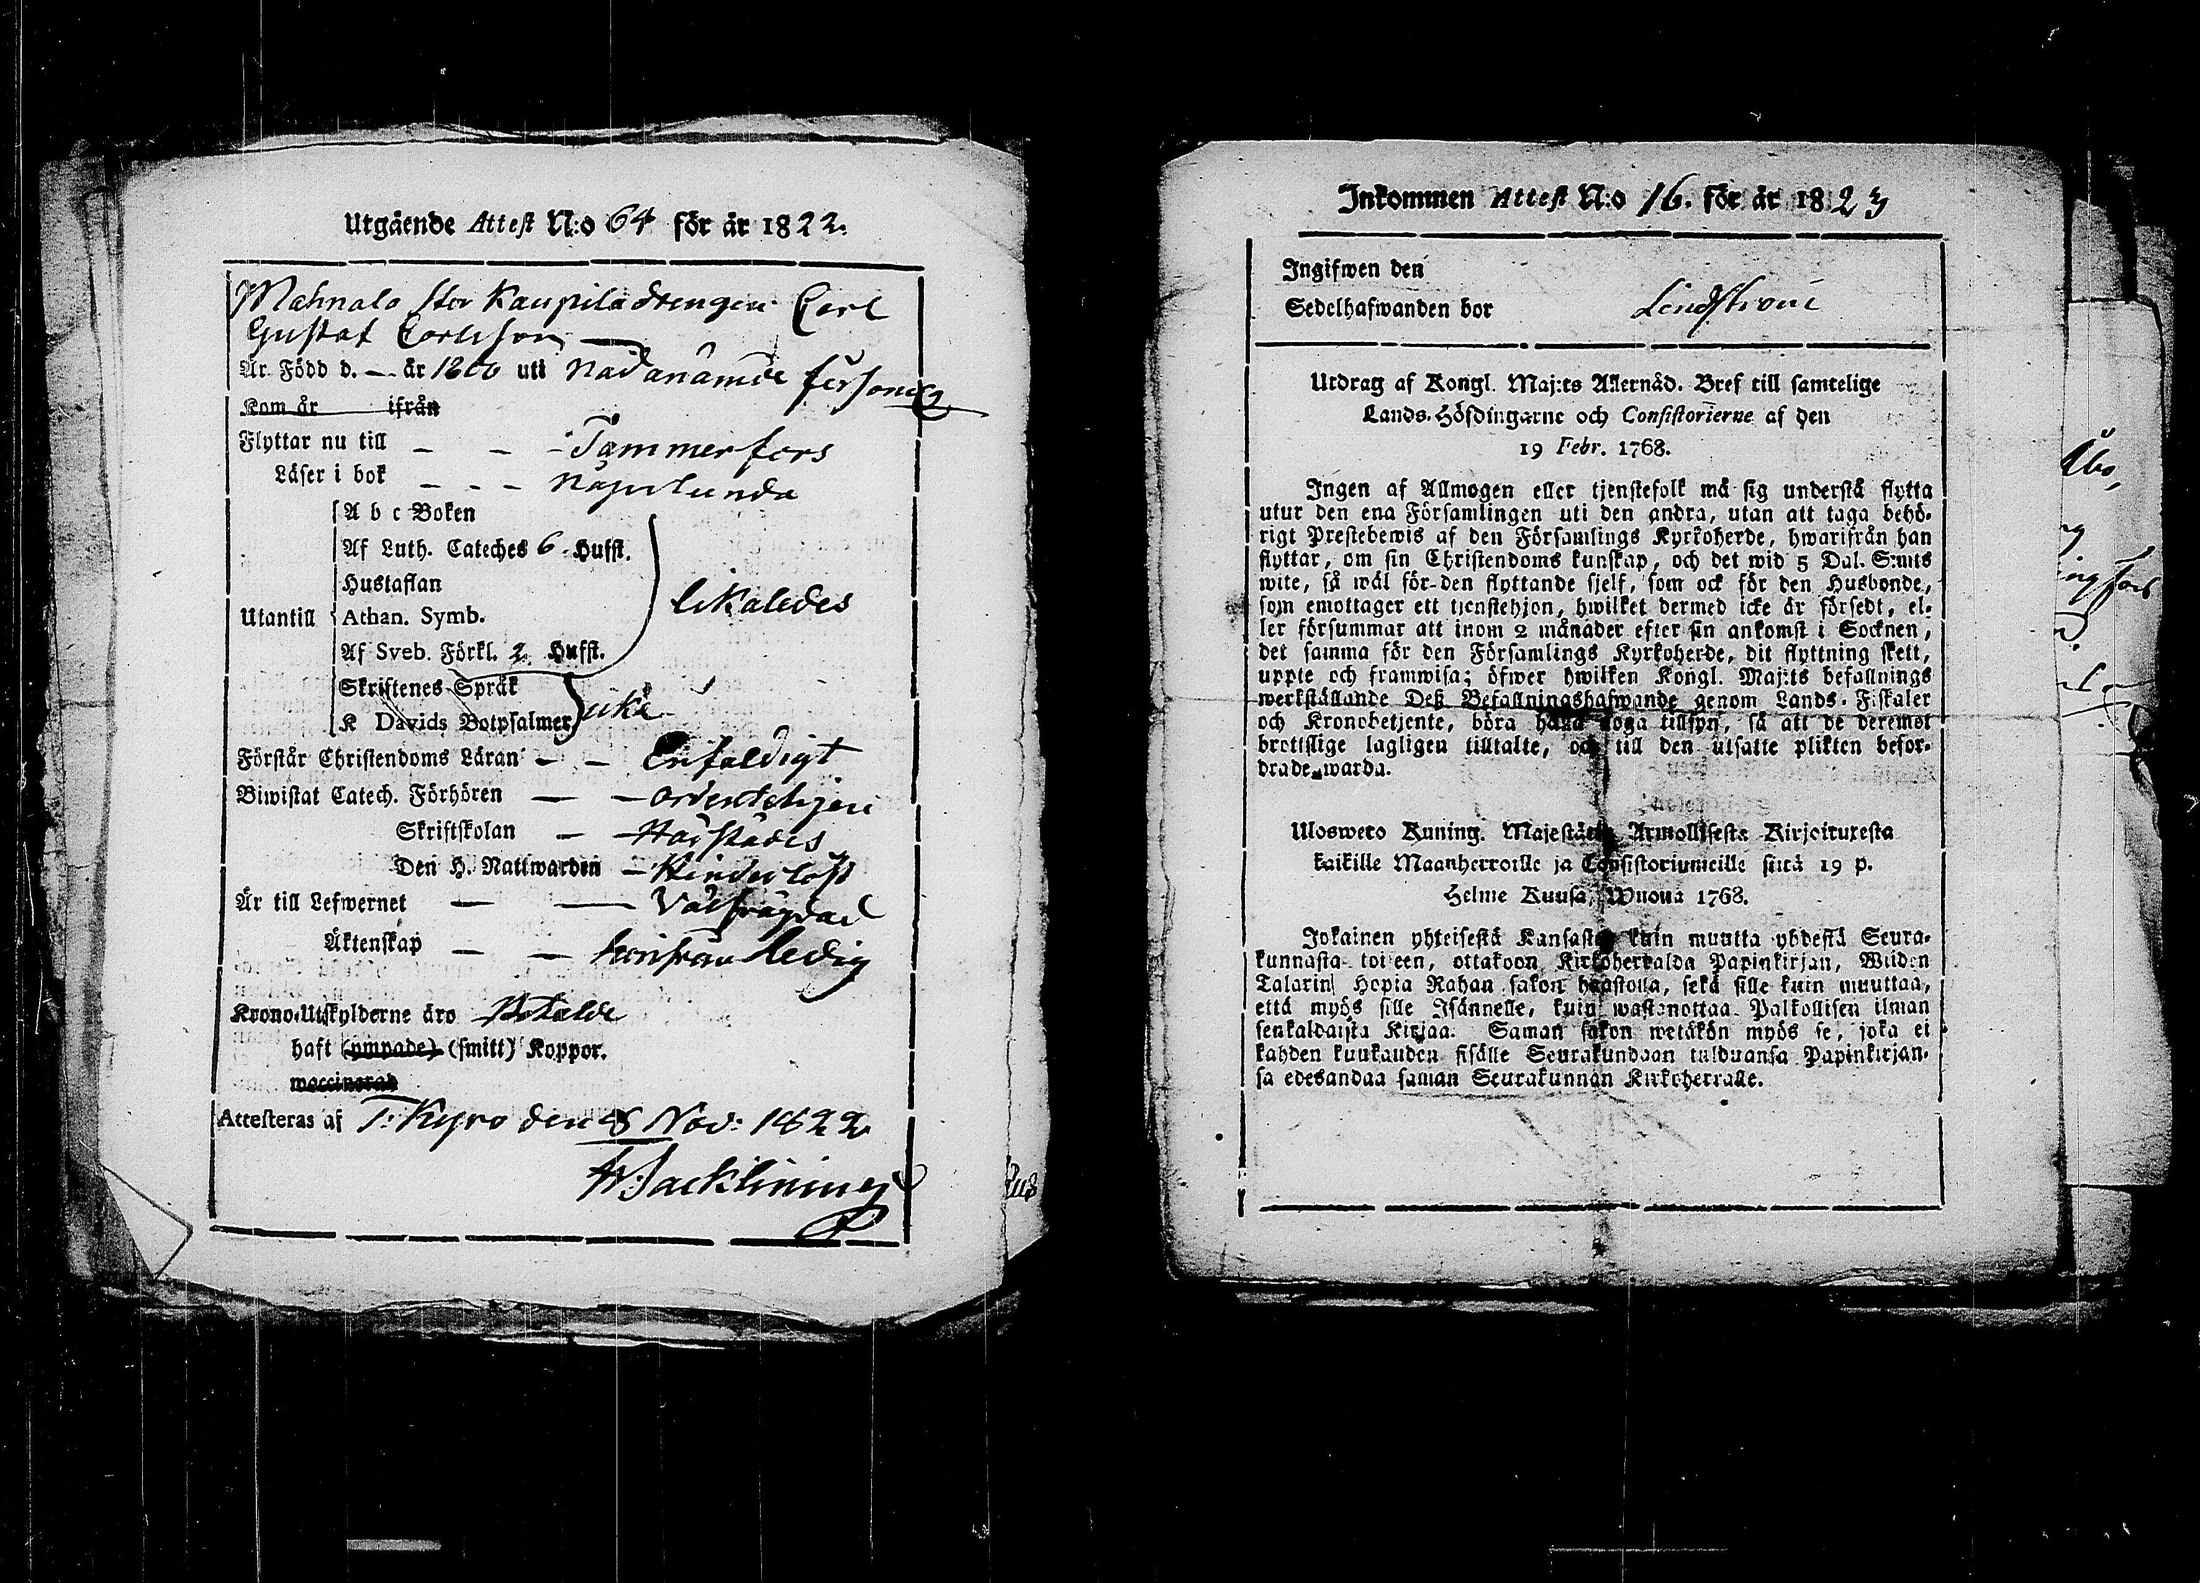 Utgående Attest N:o 64 för år 1822.
Mahnala Stor Kaupila drengen Carl
Gustaf Carlsson
Är Född d. — år 1800 uti
Kom år ifrån
Flyttar nu till — — — Tammerfors
Läser i bok — — —
A b c Boken
Af Luth. Cateches 6. Hufst.
Hustaflan
Utantill Athan. Symb. likaledes
Af Sveb. Förkl. 2 Hufst.
Skriftenes Språk
K Davids Botpsalmer icke
Förstår Christendoms Läran — — Enfaldigt
Biwistat Catech. Förhören — — ordenteligen
Skriftskolan — — Härstädes
Den H. Nattwarden — Hinderlöst
Är till Lefwernet — — Välfrägdad
Äktenskap — — härifrån ledig
Krono-Utskylderne äro Betalde
haft (ympade) (smitt) Koppor.
waccinerad
Attesteras af T: Kyro den 8 Nov: 1822
Inkommen Attest N:o 16. för år 1823
Ingifwen den
Sedelhafwanden bor
Utdrag af Kongl. Maj:ts Allernåd. Bref till samtelige
Lands-Höfdingarne och Consistorierne af den
19 Febr. 1768.
Ingen af Allmogen eller tjenstefolk må sig understå flytta
utur den ena Församlingen uti den andra, utan att taga behö-
rigt Prestebewis af den Församlings Kyrkoherde, hwarifrån han
flyttar, om sin Christendoms kunskap, och det wid 5 Dal. S:mts
wite, så wäl för den flyttande sjelf, som ock för den Husbonde,
som emottager ett tjenstehjon, hwilket dermed icke är försedt, el-
ler försummar att inom 2 månader efter sin ankomst i Socknen,
det samma för den Församlings Kyrkoherde, dit flyttning skett,
uppte och framwisa; öfwer hwilken Kongl. Maj:ts befallnings
werkställande Deß Befallningshafwande genom Lands-Fiskaler
och Kronobetjente, böra hafwa noga tillsyn, så att de deremot
brottslige lagligen tilltalte, och till den utsatte plikten befor-
drade warda.
Ulosweto Kuning. Majestätin Armollisesta Kirjoituxesta
kaikille Maanherroille ja Consistoriumeille siitä 19 p.
Helme Kuusa, Wuona 1768.
Jokainen yhteisestä Kansasta kuin muutta yhdestä Seura-
kunnasta toiseen, ottakoon Kirkoherralda Papinkirjan, Wiiden
Talarin Hopia Rahan sakon haastolla, sekä sille kuin muuttaa,
että myös sille Isännelle, kuin wastanottaa Palkollisen ilman
senkaldaista Kirjaa. Saman sakon wetäkön myös se, joka ei
kahden kuukauden sisälle Seurakundaan tulduansa Papinkirjan-
sa edesandaa saman Seurakunnan Kirkoherralle.